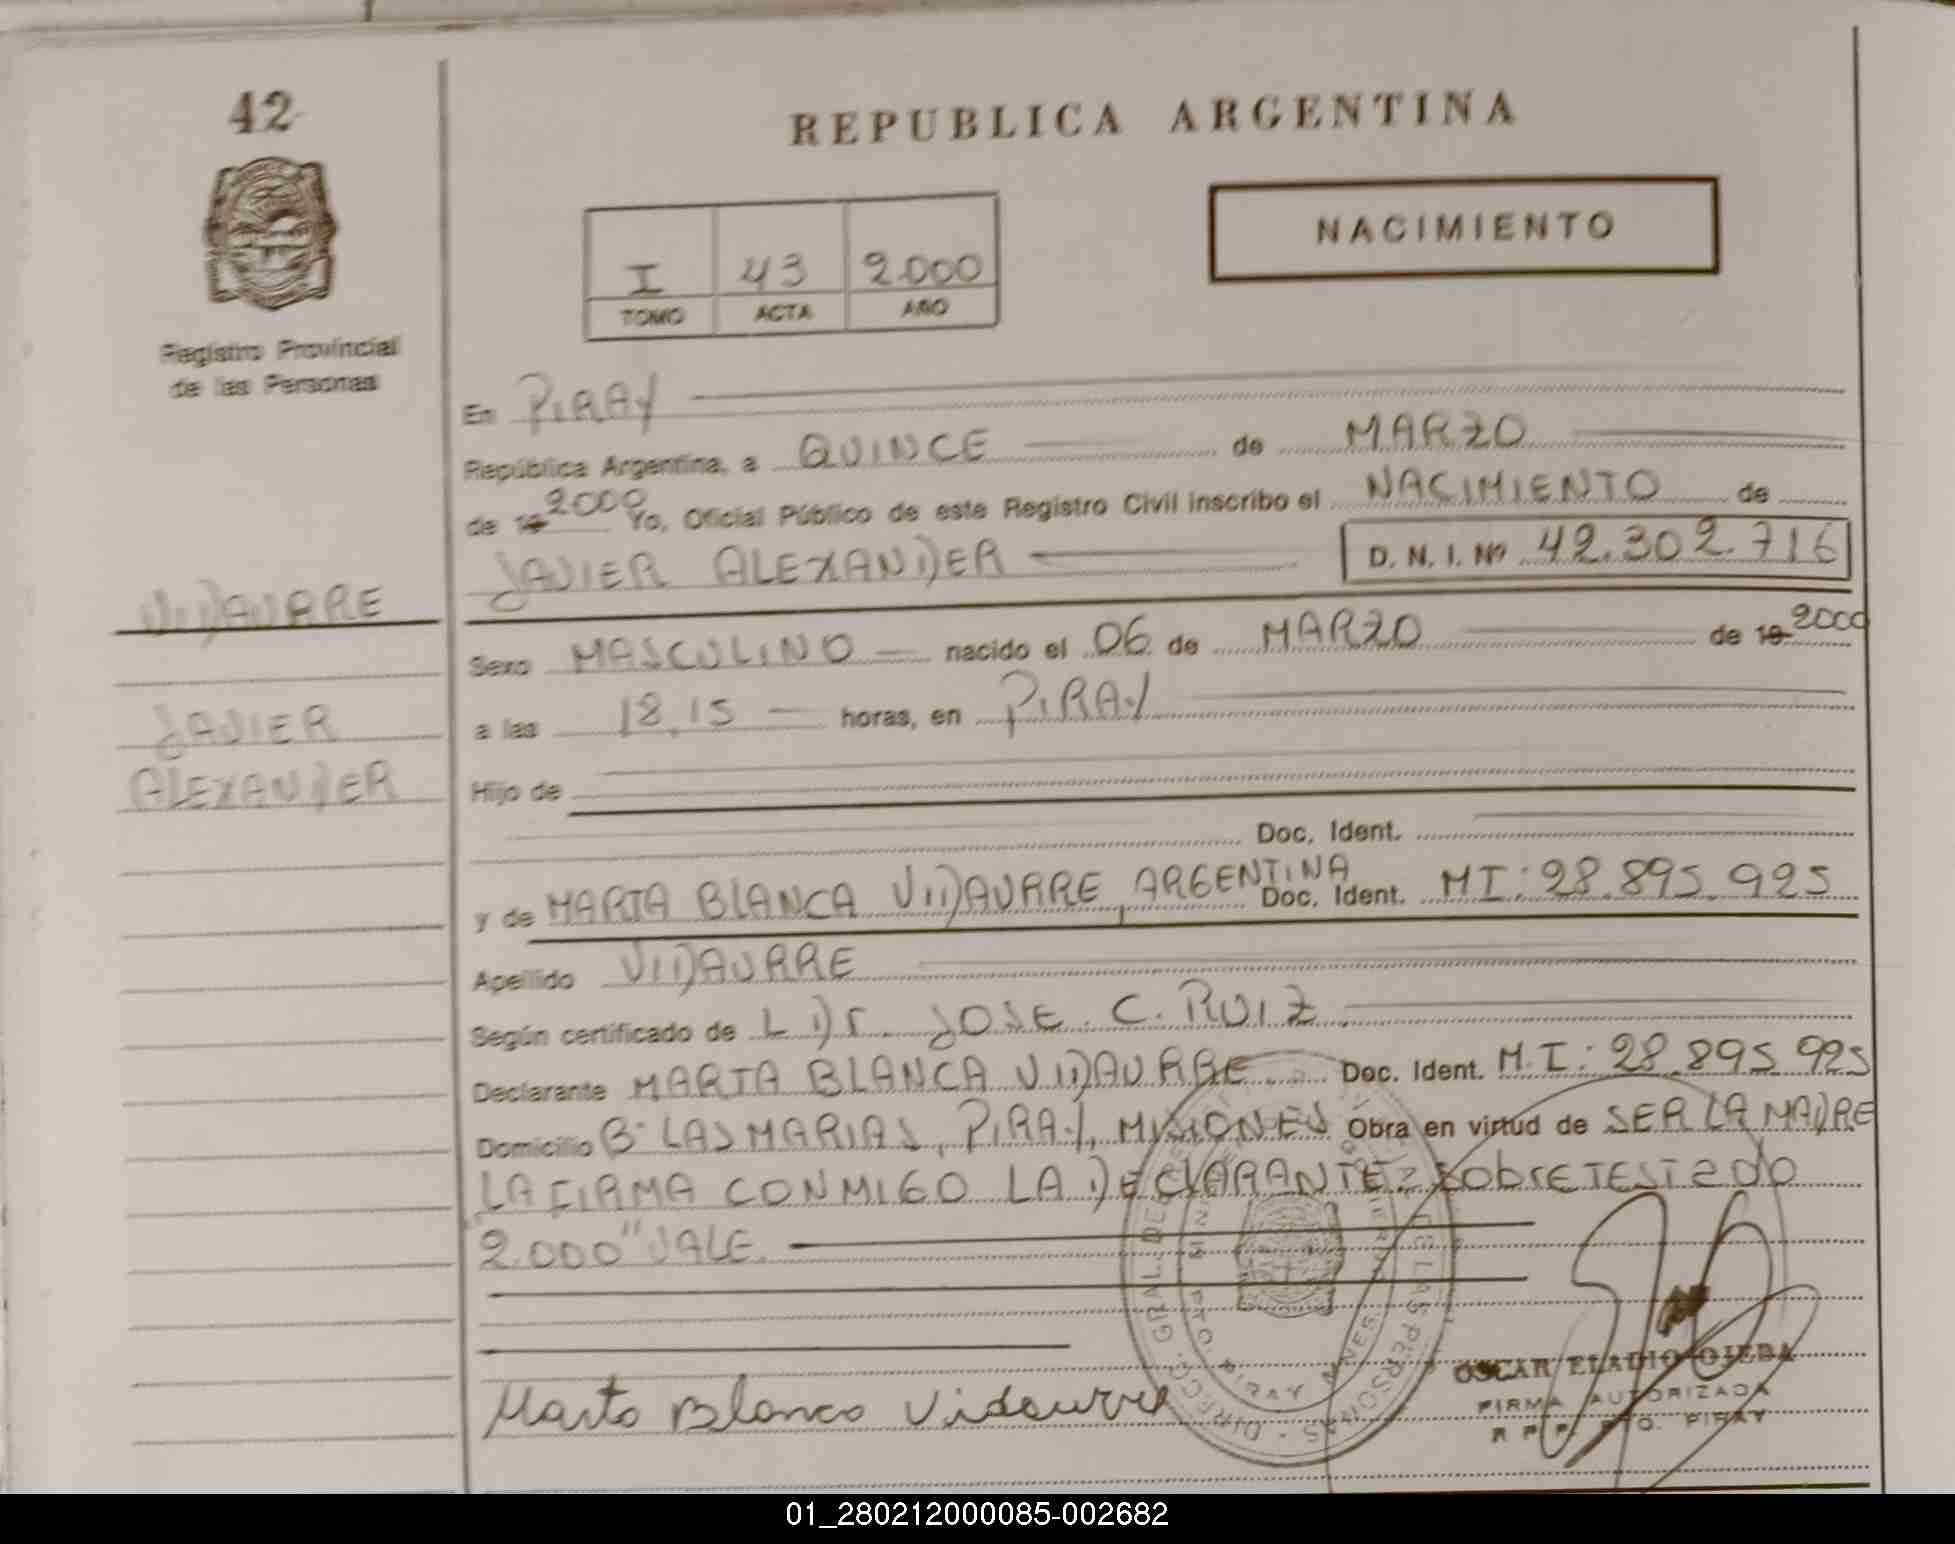 42
REPUBLICA ARGENTINA
NACIMIENTO
I 43 2.000
TOMO ACTA AÑO
Registro Provincial
de las Personas
En PIRAY
República Argentina, a QUINCE de MARZO
de 19 2000 Yo, Oficial Público de este Registro Civil inscribo el NACIMIENTO de
JAVIER ALEXANDER D. N. I. Nº 42.302.716
VIDAURRE
JAVIER
ALEXANDER
Sexo MASCULINO nacido el 06 de MARZO de 19 2000
a las 18,15 horas, en PIRAY
Hijo de
Doc. Ident.
y de MARTA BLANCA VIDAURRE, ARGENTINA Doc. Ident. MI: 28.895.925
Apellido VIDAURRE
Según certificado de L Dr. JOSE C. RUIZ
Declarante MARTA BLANCA VIDAURRE Doc. Ident. M.I: 28.895.925
Domicilio Bº LAS MARIAS, PIRAY, MISIONES Obra en virtud de SER LA MADRE
LA FIRMA CONMIGO LA DECLARANTE: SobrETESTado
"2.000" VALE.
Marta Blanca Vidaurre
OSCAR ELADIO OJEDA
FIRMA AUTORIZADA
R P P. PTO. PIRAY
DIRECC. GRAL. DE LAS PERSONAS
PTO. PIRAY MNES.
01_280212000085-002682